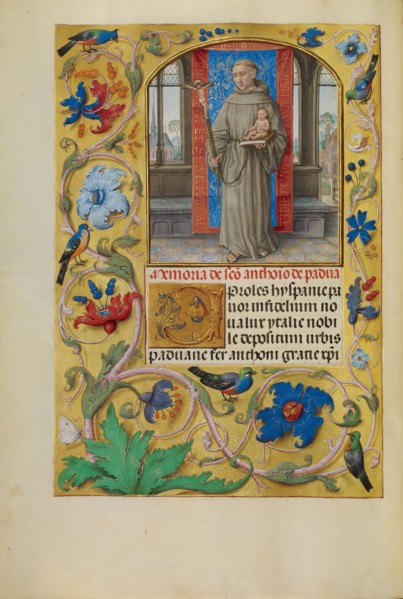 Memoria de sco anthoĩo de padua
O proles hyspanie pa
uor infidelium no
ua lux ytalie nobi
le depositum urbis
paduane fer anthoni gratie xp̃i